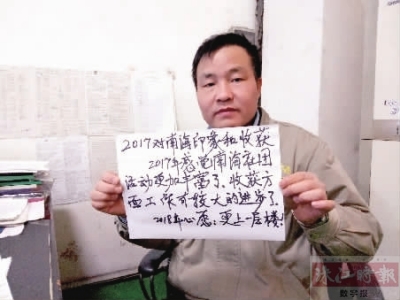 2017对南海印象和收获
2017年感觉南海社团
活动更加丰富了、收获方
面工作有较大的进步了.
2018年心愿:更上一层楼!
珠江时报
数字报